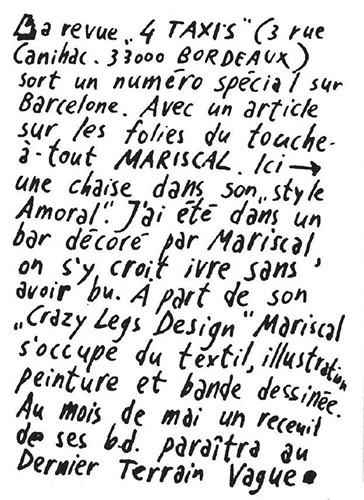 La revue „4 TAXIS" (3 rue
Canihac. 33000 BORDEAUX)
sort un numéro spécial sur
Barcelone. Avec un article
sur les folies du touche-
à-tout MARISCAL. Ici →
une chaise dans son „style
Amoral". J'ai été dans un
bar décoré par Mariscal,
on s'y croit ivre sans
avoir bu. À part de son
„Crazy Legs Design" Mariscal
s'occupe du textil, illustration,
peinture et bande dessinée.
Au mois de mai un receuil
de ses b.d. paraîtra au
Dernier Terrain Vague.